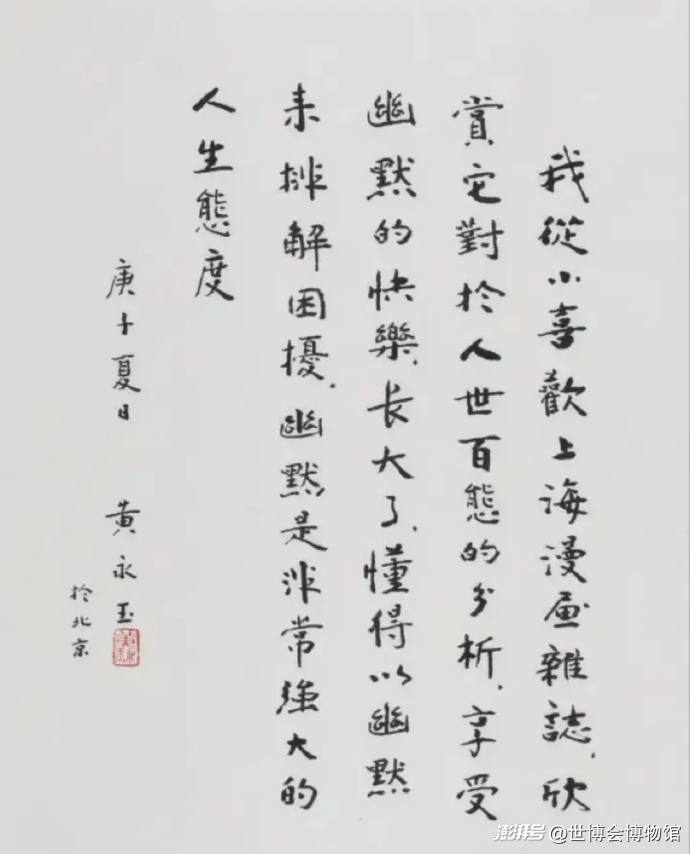 我從小喜歡上海漫画雜誌，欣
賞它對於人世百態的分析，享受
幽默的快樂，长大了，懂得以幽默
来排解困擾，幽默是非常強大的
人生態度
庚子夏日 黄永玉
於北京
澎湃号@世博会博物馆